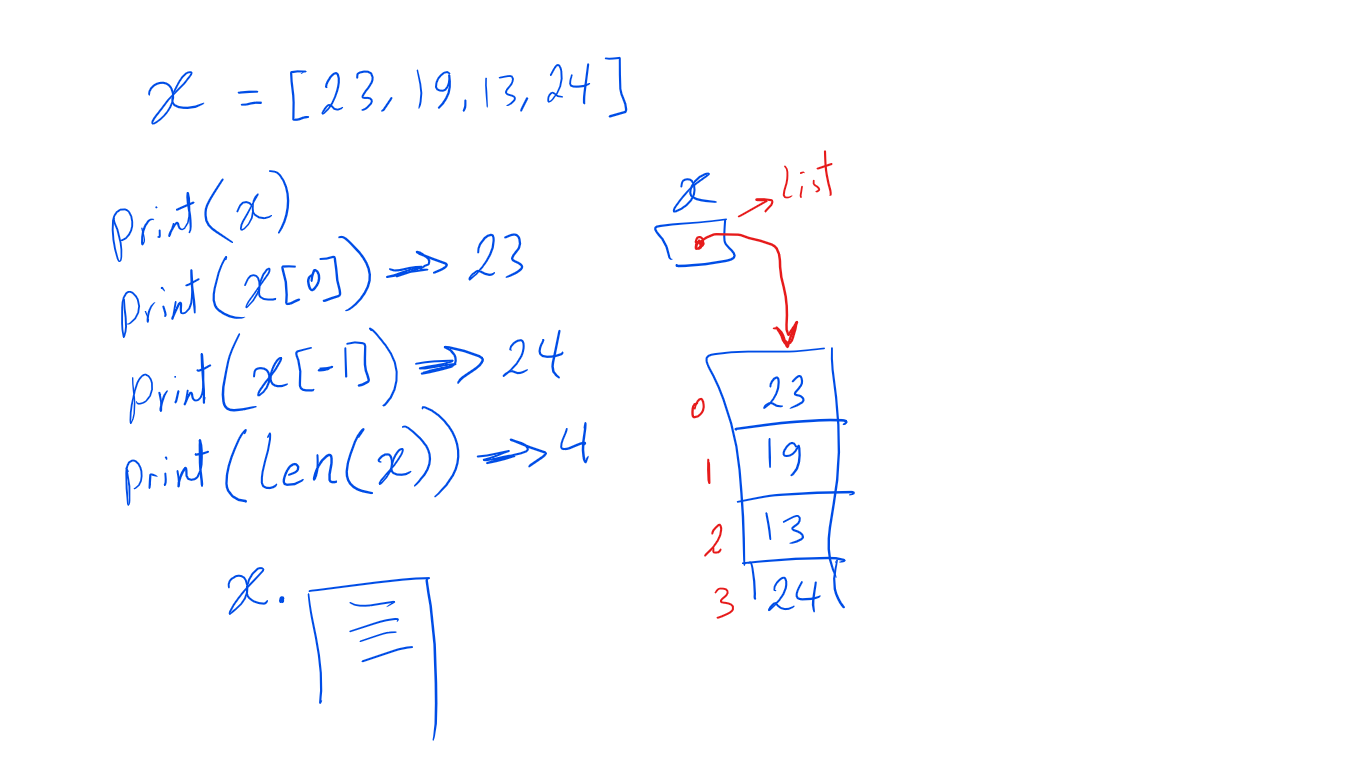 x = [23, 19, 13, 24]
print(x)
print(x[0]) => 23
print(x[-1]) => 24
print(len(x)) => 4
x.
x → list
0 23
1 19
2 13
3 24